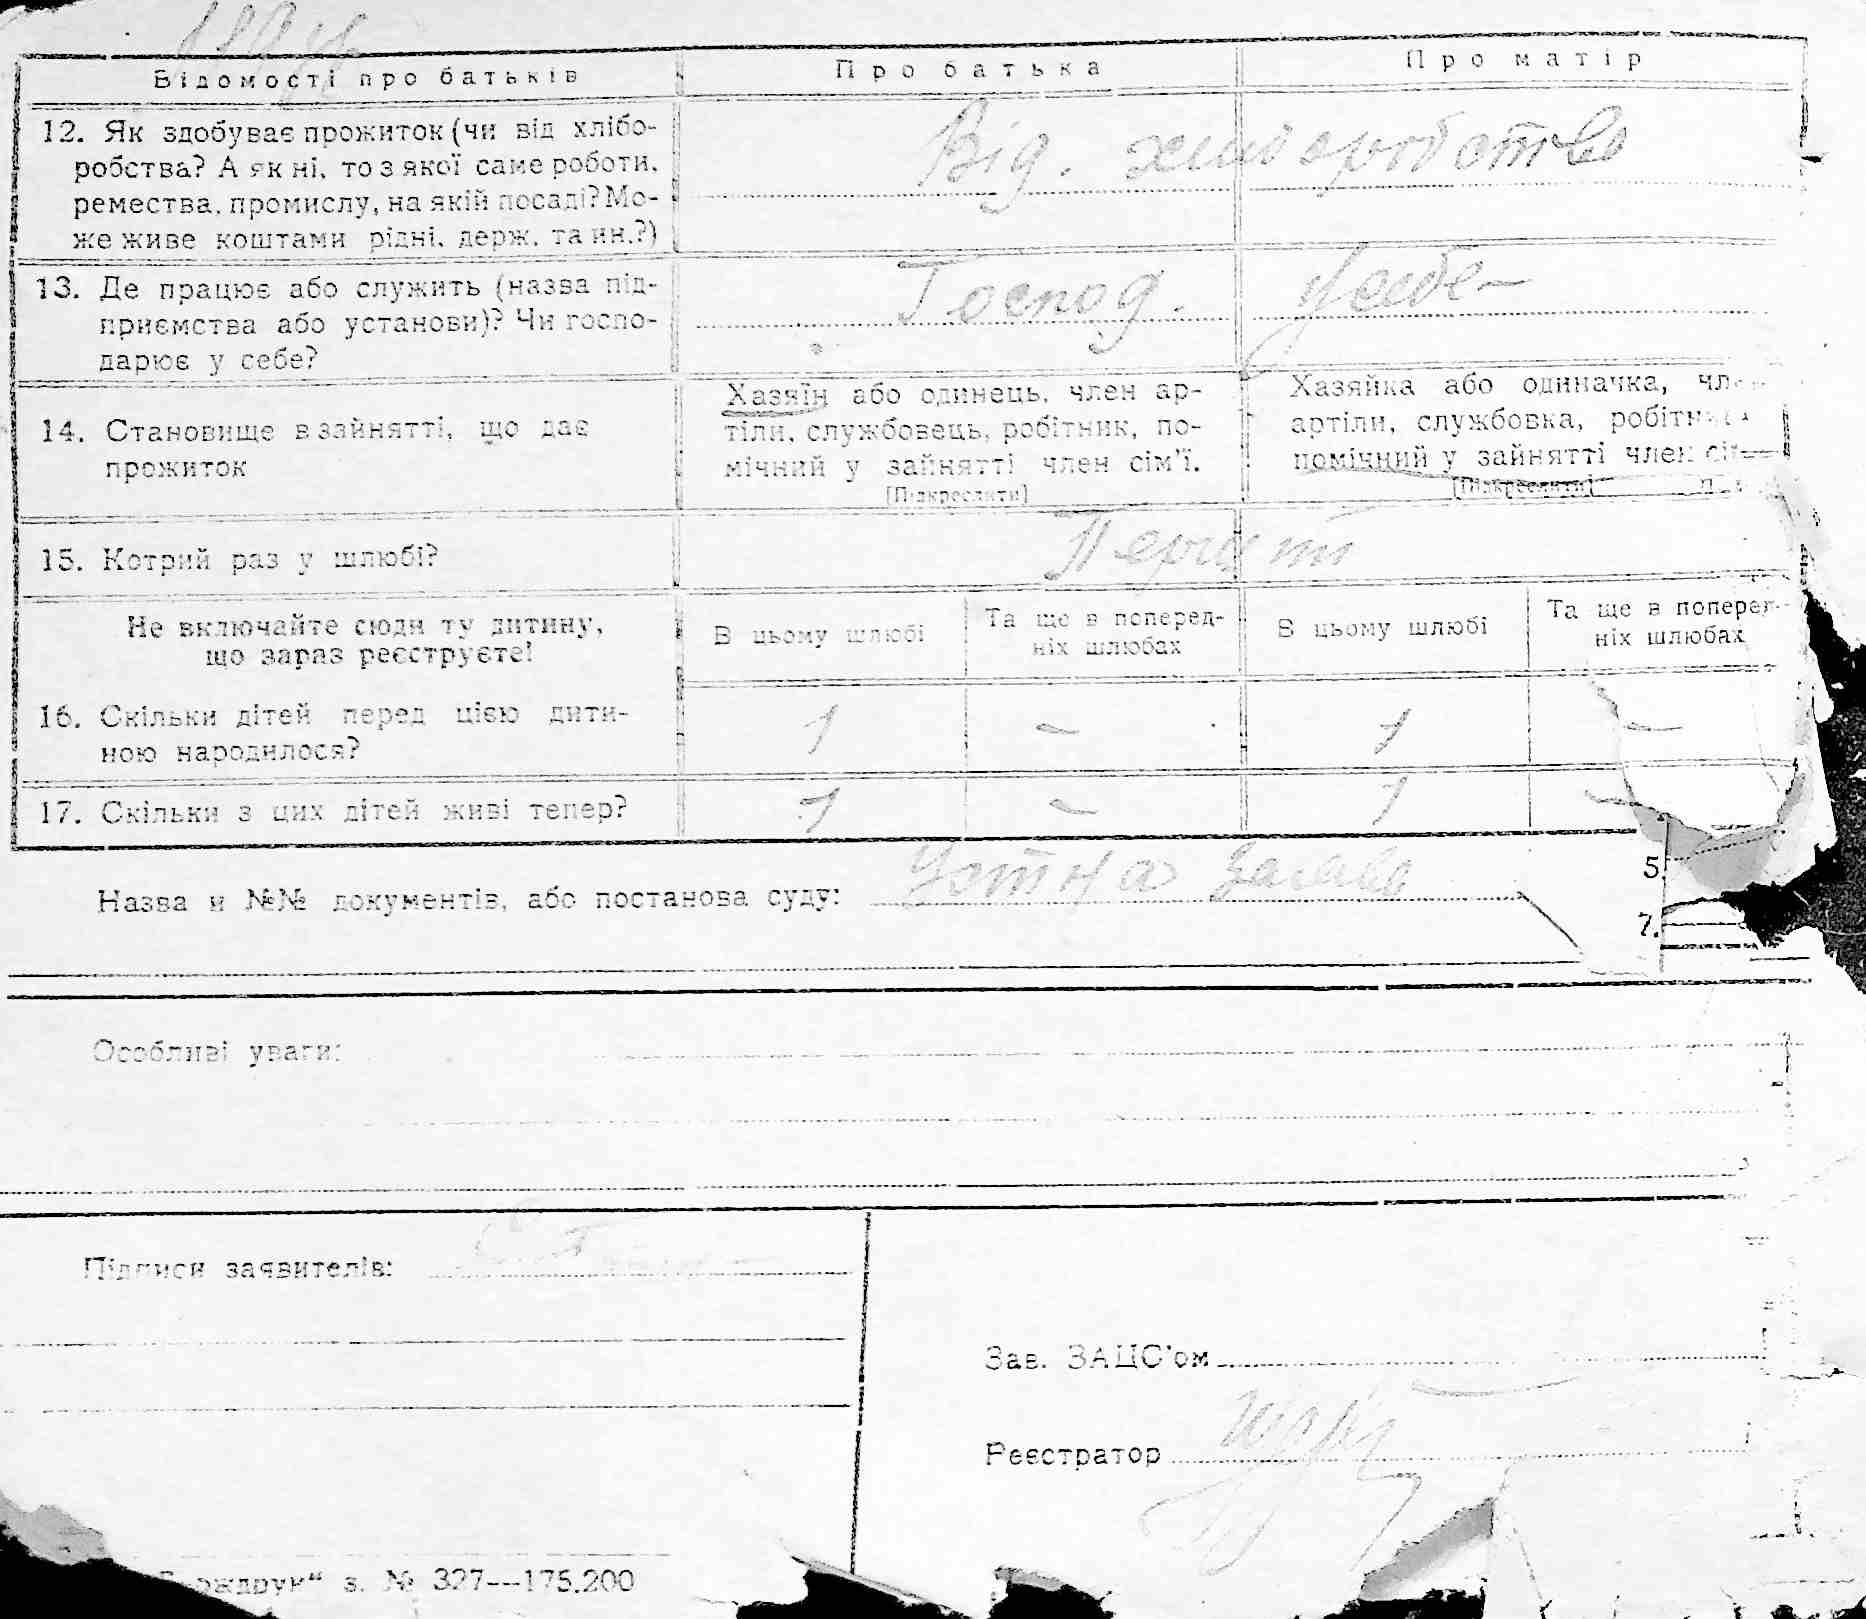 Відомості про батьків
Про батька
Про матір
12. Як здобуває прожиток (чи від хлібо-
робства? А як ні, то з якої саме роботи,
ремества, промислу, на якій посаді? Мо-
же живе коштами рідні, держ. та ин.?)
Від. хліборобства
13. Де працює або служить (назва під-
приємства або установи)? Чи госпо-
дарює у себе?
Господ. у себе
14. Становище в зайнятті, що дає
прожиток
Хазяїн або одинець, член ар-
тіли, службовець, робітник, по-
мічний у зайнятті член сім'ї.
[Підкреслити]
Хазяйка або одиначка,
артіли, службовка,
помічний у зайнятті член
[Підкреслити]
15. Котрий раз у шлюбі?
Перший
Не включайте сюди ту дитину,
що зараз реєструєте!
В цьому шлюбі
Та ще в поперед-
ніх шлюбах
В цьому шлюбі
Та ще в поперед-
ніх шлюбах
16. Скільки дітей перед цією дити-
ною народилося?
1 – 1 –
17. Скільки з цих дітей живі тепер?
1 – 1 –
Назва и №№ документів, або постанова суду: Устна заява
5.
7.
Особливі уваги:
Підписи заявителів:
Зав. ЗАЦС'ом
Реєстратор
з. № 327—175.200